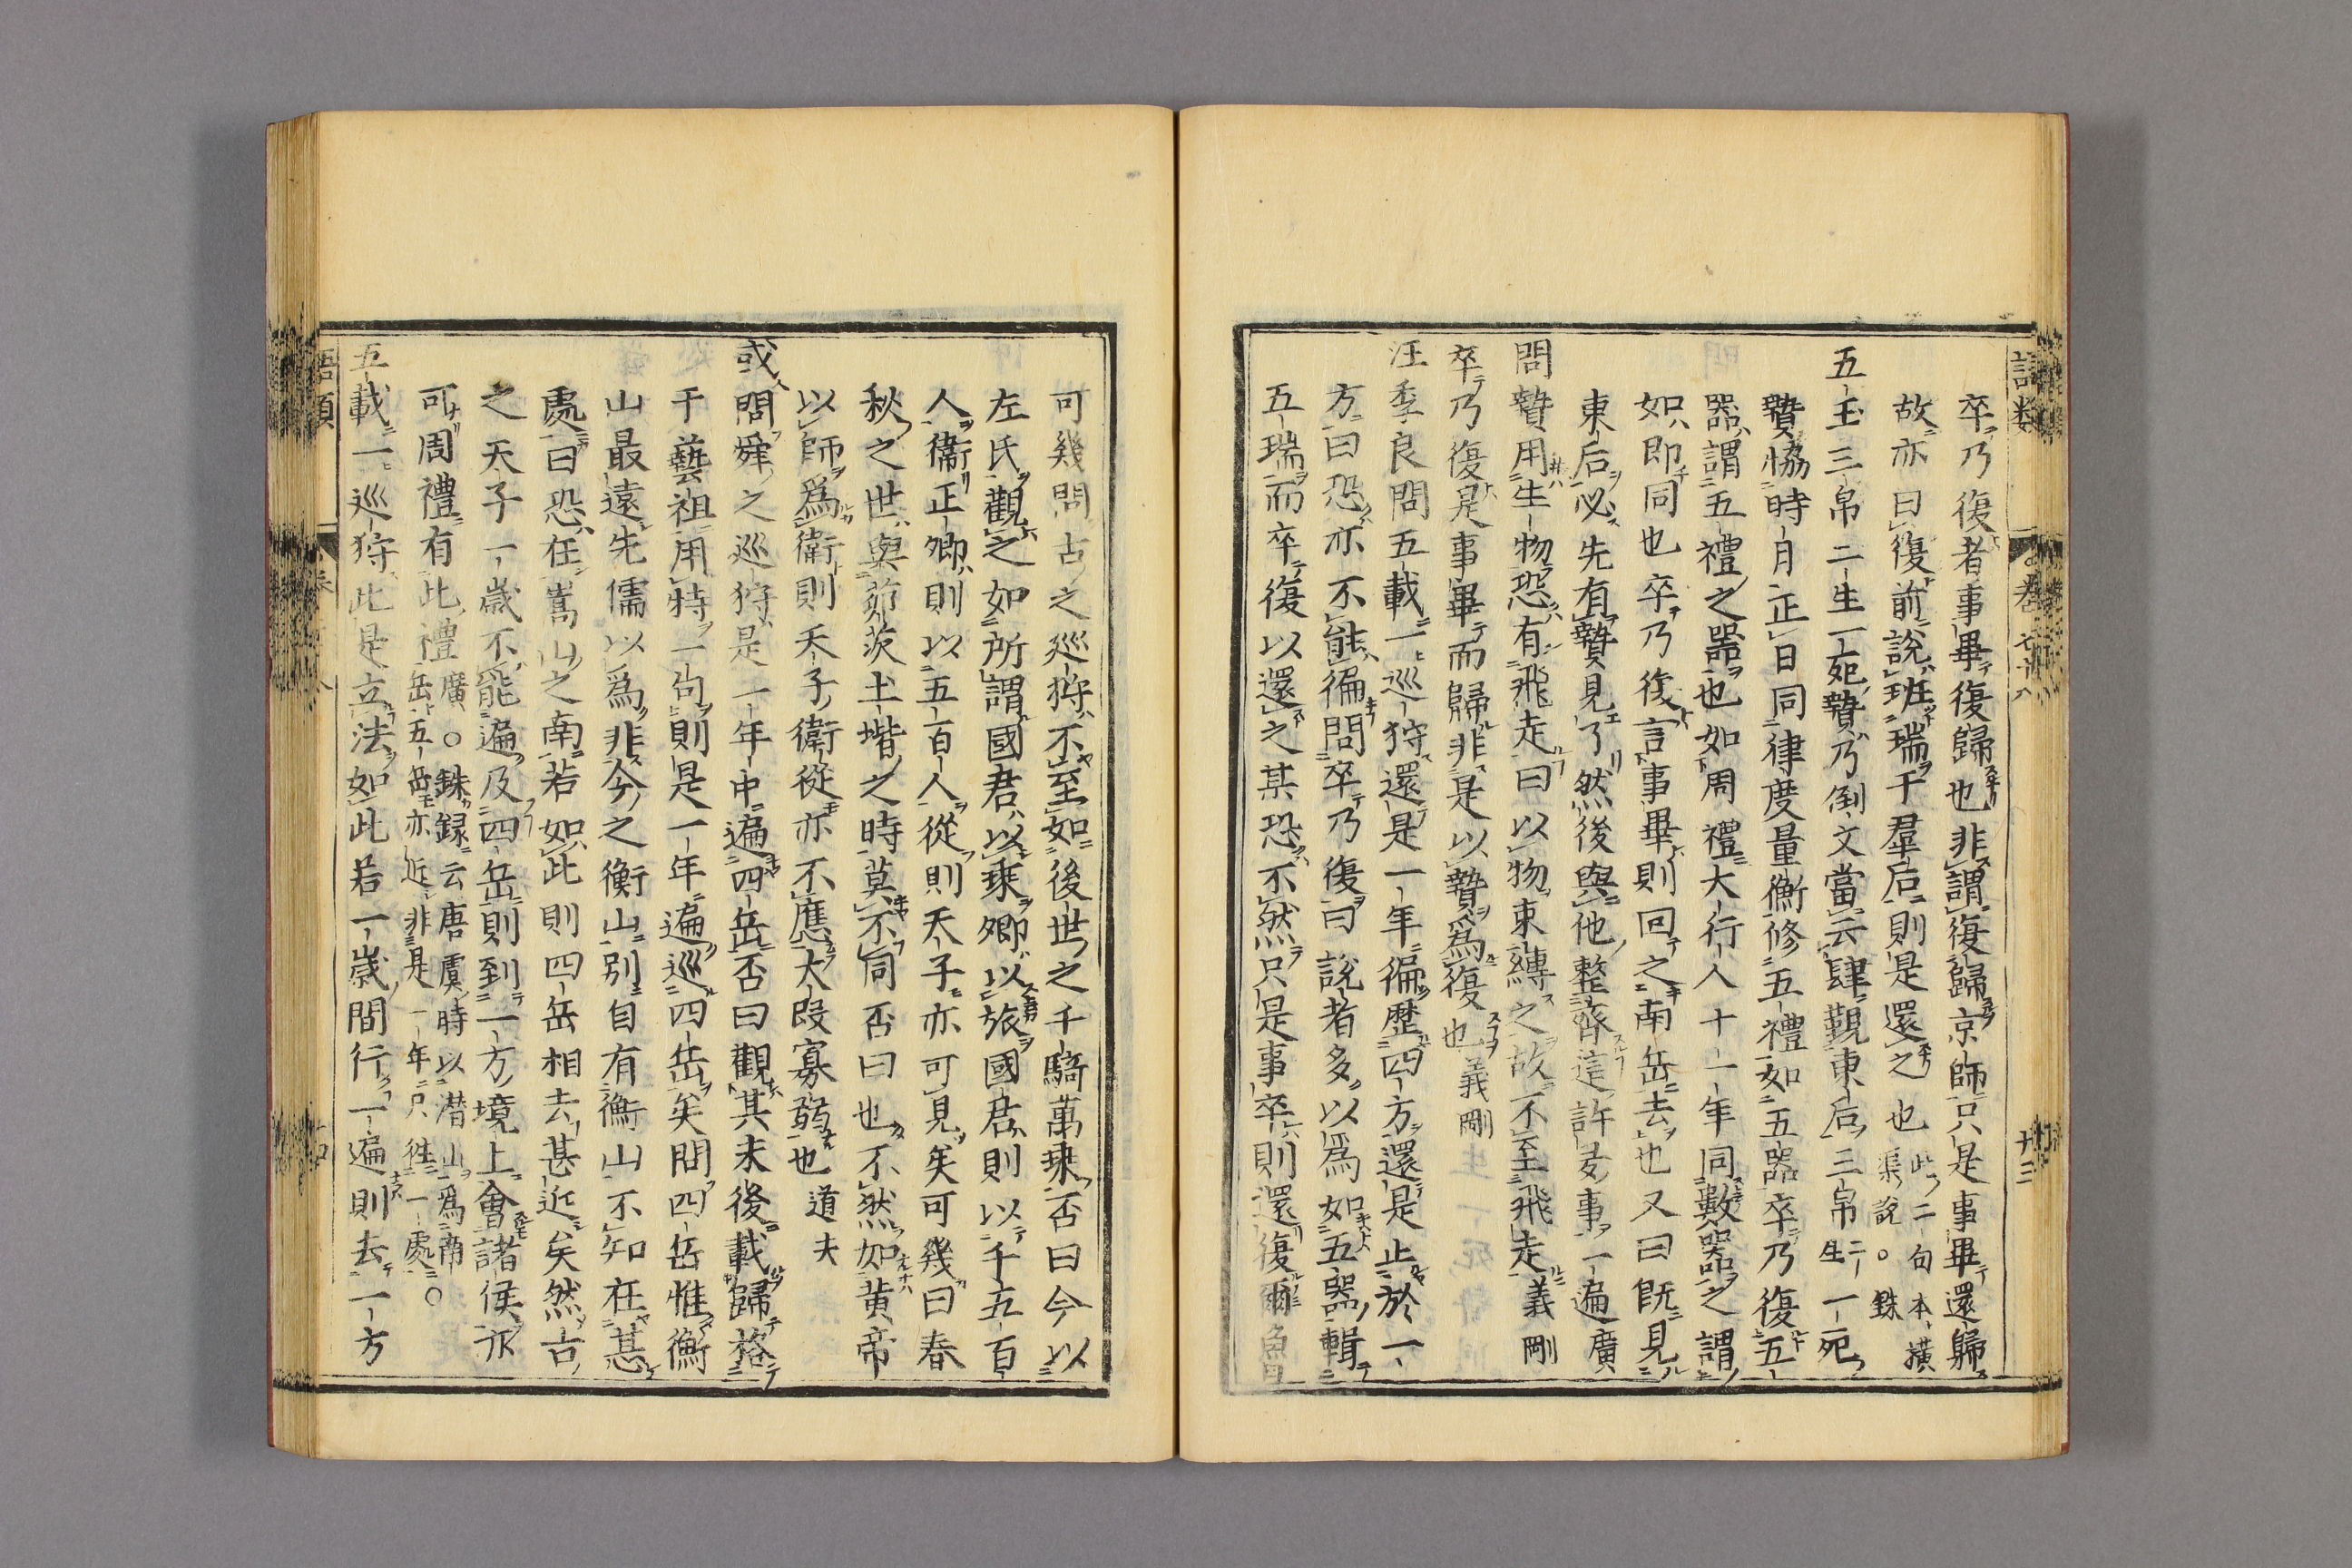 語類
卷七十八
廿三
卒乃復者事畢復歸也非謂復歸京師只是事畢還歸
故亦曰復前說班瑞于羣后則是還之也此二句本橫
渠說○銖
五玉三帛二生一死贄乃倒文當云肆覲東后三帛二
生一死
贄恊時月正日同律度量衡修五禮如五器卒乃復五
器謂五禮之器也如周禮大行人十一年同數器之謂
如即同也卒乃復言事畢則回之南岳去也又曰既見
東后必先有贄見了然後與他整齊這許多事一遍廣
問贄用生物恐有飛走曰以物束縛之故不至飛走義剛
卒乃復是事畢而歸非是以贄爲復也義剛
汪季良問五載一巡狩還是一年徧歷四方還是止於一
方曰恐亦不能徧問卒乃復曰說者多以爲如五器輯
五瑞而卒復以還之某恐不然只是事卒則還復爾魯
可幾問古之巡狩不至如後世之千騎萬乘否曰今以
左氏觀之如所謂國君以乘卿以旅國君則以千五百
人衞正卿則以五百人從則天子亦可見矣可幾曰春
秋之世與茆茨土堦之時莫不同否曰也不然如黃帝
以師爲衛則天子衛從亦不應大段寡弱也道夫
或問舜之巡狩是一年中遍四岳否曰觀其末後載歸格
于藝祖用特一句則是一年遍巡四岳矣問四岳惟衡
山最遠先儒以爲非今之衡山別自有衡山不知在甚
處曰恐在嵩山之南若如此則四岳相去甚近矣然古
之天子一歲不能遍及四岳則到一方境上會諸侯亦
可周禮有此禮廣○銖錄云唐虞時以潜山爲南
岳五岳亦近非是一年只徃一處○
五載一巡狩此是立法如此若一歲間行一遍則去一方
語類